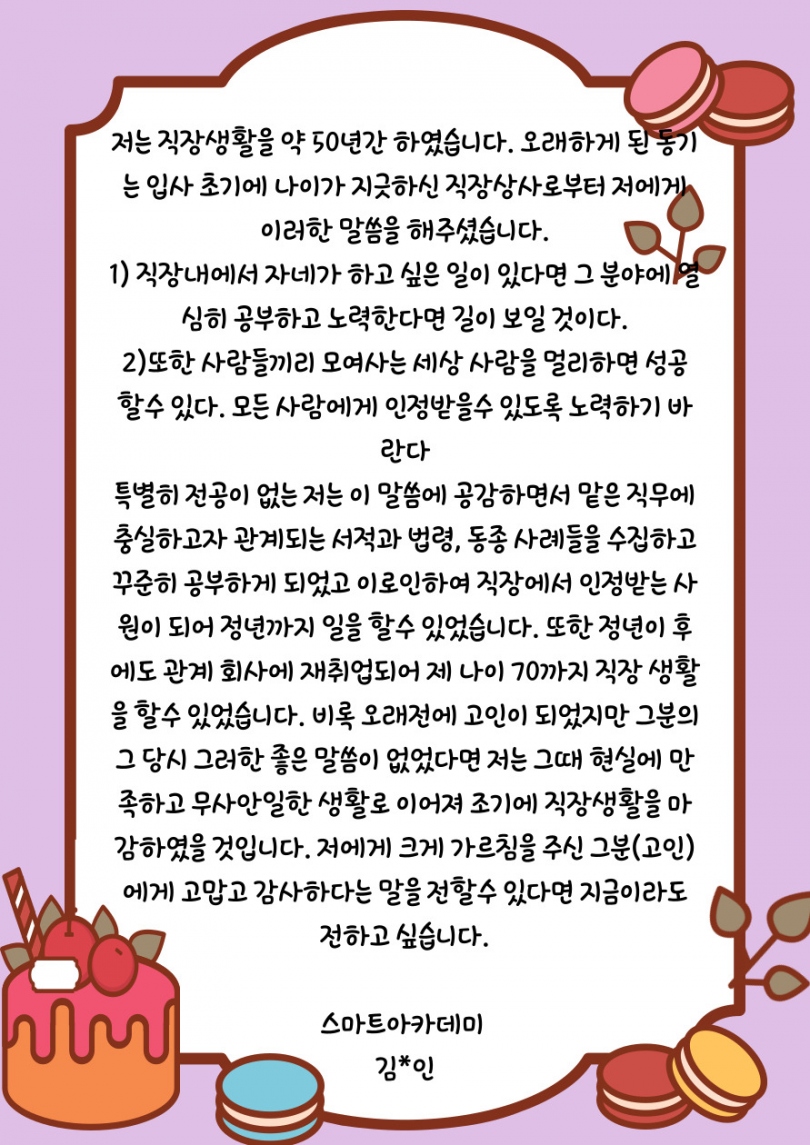 저는 직장생활을 약 50년간 하였습니다. 오래하게 된 동기
는 입사 초기에 나이가 지긋하신 직장상사로부터 저에게
이러한 말씀을 해주셨습니다.
1) 직장내에서 자네가 하고 싶은 일이 있다면 그 분야에 열
심히 공부하고 노력한다면 길이 보일 것이다.
2)또한 사람들끼리 모여사는 세상 사람을 멀리하면 성공
할수 있다. 모든 사람에게 인정받을수 있도록 노력하기 바
란다
특별히 전공이 없는 저는 이 말씀에 공감하면서 맡은 직무에
충실하고자 관계되는 서적과 법령, 동종 사례들을 수집하고
꾸준히 공부하게 되었고 이로인하여 직장에서 인정받는 사
원이 되어 정년까지 일을 할수 있었습니다. 또한 정년이 후
에도 관계 회사에 재취업되어 제 나이 70까지 직장 생활
을 할수 있었습니다. 비록 오래전에 고인이 되었지만 그분의
그 당시 그러한 좋은 말씀이 없었다면 저는 그때 현실에 만
족하고 무사안일한 생활로 이어져 조기에 직장생활을 마
감하였을 것입니다. 저에게 크게 가르침을 주신 그분(고인)
에게 고맙고 감사하다는 말을 전할수 있다면 지금이라도
전하고 싶습니다.
스마트아카데미
김*인